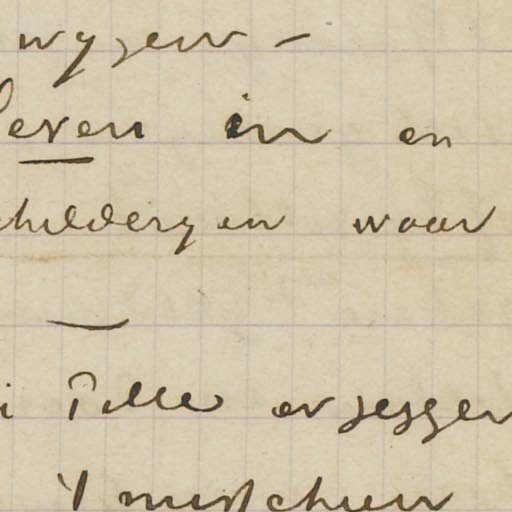 wyzen —
leven in en
childeryen waar
Pille er zeggen
't misschien